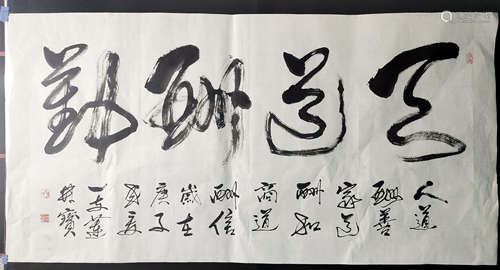 天道酬勤
人道
酬善
家道
酬和
商道
酬信
歲在
庚子
盛夏